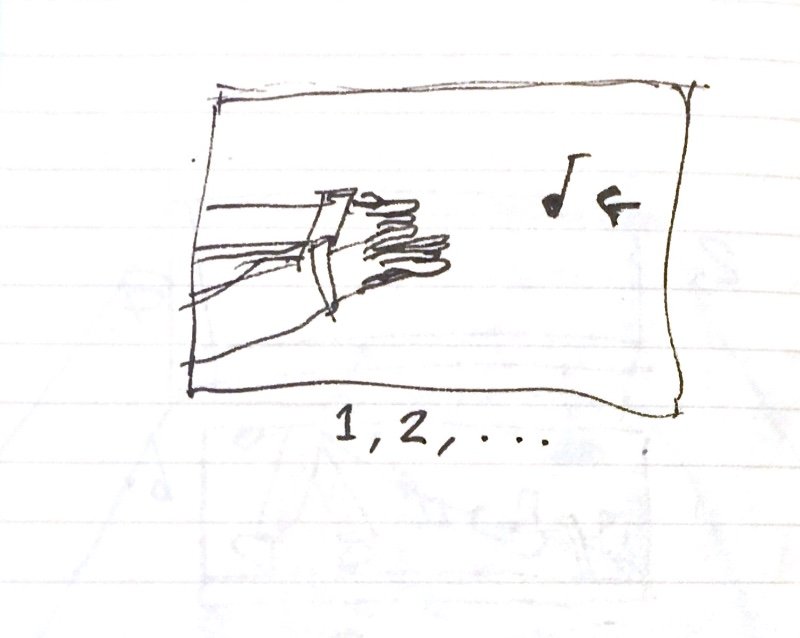 1, 2, ...